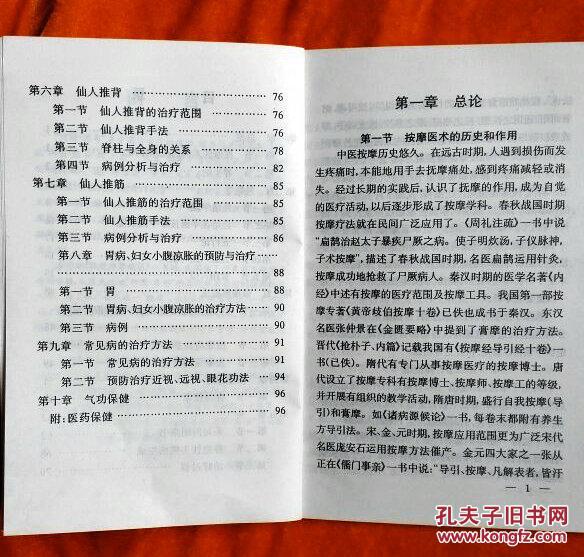 第六章 仙人推背 …………………… 76
第一节 仙人推背的治疗范围 …………… 76
第二节 仙人推背手法 …………………… 76
第三节 脊柱与全身的关系 ……………… 78
第四节 病例分析与治疗 ………………… 82
第七章 仙人推筋 …………………… 85
第一节 仙人推筋的治疗范围 …………… 85
第二节 仙人推筋手法 …………………… 85
第三节 病例分析与治疗 ………………… 86
第八章 胃病、妇女小腹凉胀的预防与治疗 ……
…………………… 88
第一节 胃 …………………… 88
第二节 胃病、妇女小腹凉胀的治疗方法 …… 90
第三节 病例 …………………… 90
第九章 常见病的治疗方法 …………………… 91
第一节 常见病的治疗方法 ……………… 91
第二节 预防治疗近视、远视、眼花功法 …… 94
第十章 气功保健 …………………… 96
附:医药保健 …………………… 96
第一章 总论
第一节 按摩医术的历史和作用
中医按摩历史悠久。在远古时期,人遇到损伤而发
生疼痛时,本能地用手去抚摩痛处,感到疼痛减轻或消
失。经过长期的实践后,认识了抚摩的作用,成为自觉
的医疗活动,以后逐步形成了按摩学科。春秋战国时期
按摩疗法就在民间广泛应用了。《周礼注疏》一书中说
"扁鹊治赵太子暴疾尸厥之病。使子明炊汤,子仪脉神,
子术按摩",描述了春秋战国时期,名医扁鹊运用针灸、
按摩成功地抢救了尸厥病人。秦汉时期的医学名著《内
经》中述有按摩的医疗范围及按摩工具。我国第一部按
摩专著《黄帝歧伯按摩十卷》已佚也成书于秦汉。东汉
名医张仲景在《金匮要略》中提到了膏摩的治疗方法。
晋代《抢朴子、内篇》记载我国有《按摩经导引经十卷》一
书(已佚)。隋代有专门从事按摩医疗的按摩博士。唐
代设立了按摩专科有按摩博士、按摩师、按摩工的等级,
并开展有组织的教学活动,隋唐时期,盛行自我按摩(导
引)和膏摩。如《诸病源候论》一书,每卷末都附有养生
方导引法。宋、金、元时期,按摩应用范围更为广泛宋代
名医庞安石运用按摩方法催产。金元四大家之一张从
正在《儒门事亲》一书中说:"导引、按摩、凡解表者,皆汗
— 1 —
孔夫子旧书网